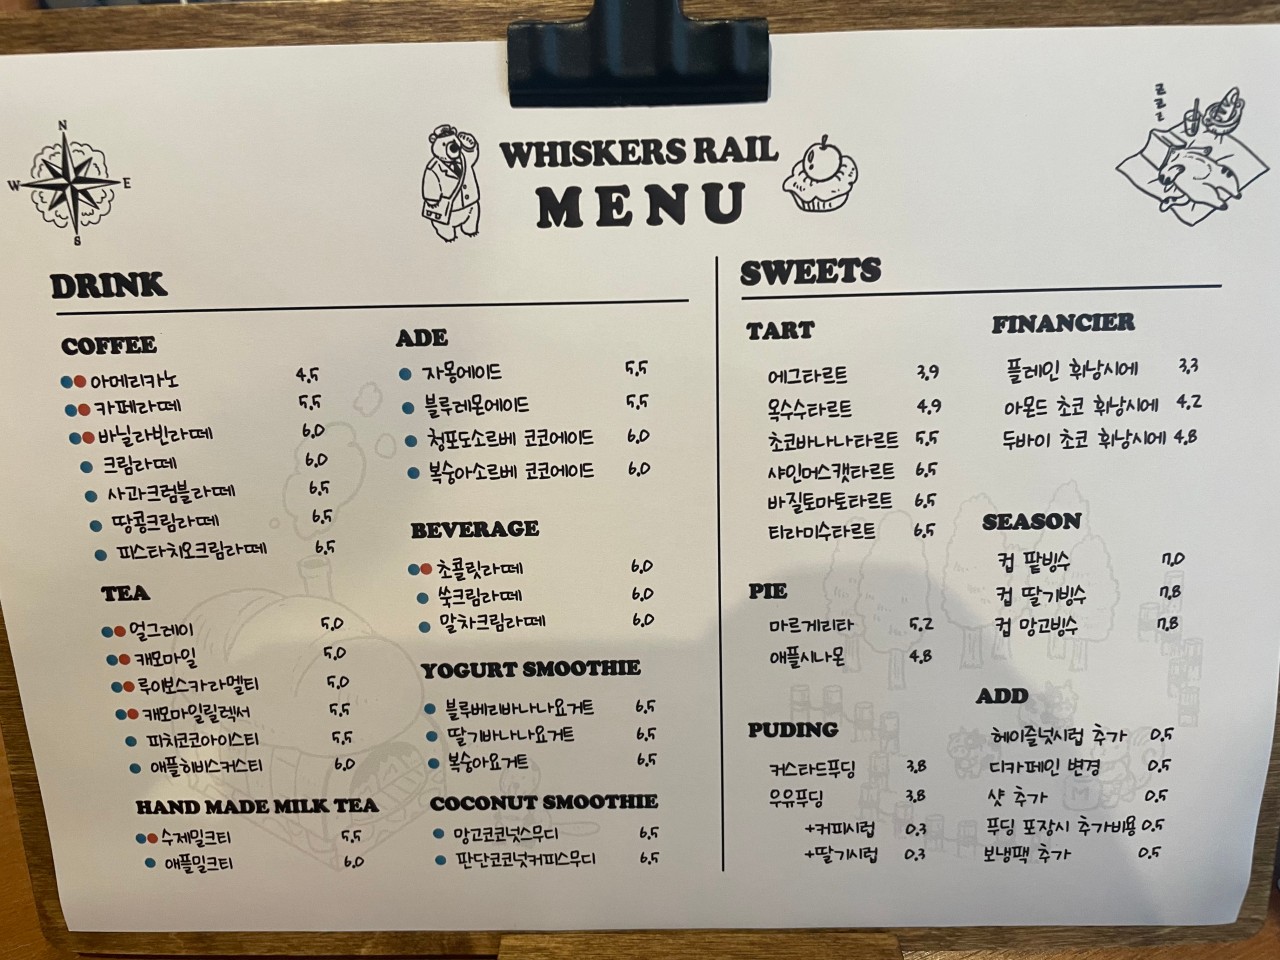 N
W E
S
z
z
z
WHISKERS RAIL
MENU
DRINK
COFFEE
아메리카노 4.5
카페라떼 5.5
바닐라빈라떼 6.0
크림라떼 6.0
사과크럼블라떼 6.5
땅콩크림라떼 6.5
피스타치오크림라떼 6.5
TEA
얼그레이 5.0
캐모마일 5.0
루이보스카라멜티 5.0
캐모마일릴렉서 5.5
피치코코아이스티 5.5
애플히비스커스티 6.0
HAND MADE MILK TEA
수제밀크티 5.5
애플밀크티 6.0
ADE
자몽에이드 5.5
블루레몬에이드 5.5
청포도소르베 코코에이드 6.0
복숭아소르베 코코에이드 6.0
BEVERAGE
초콜릿라떼 6.0
쑥크림라떼 6.0
말차크림라떼 6.0
YOGURT SMOOTHIE
블루베리바나나요거트 6.5
딸기바나나요거트 6.5
복숭아요거트 6.5
COCONUT SMOOTHIE
망고코코넛스무디 6.5
판단코코넛커피스무디 6.5
SWEETS
TART
에그타르트 3.9
옥수수타르트 4.9
초코바나나타르트 5.5
샤인머스캣타르트 6.5
바질토마토타르트 6.5
티라미수타르트 6.5
PIE
마르게리타 5.2
애플시나몬 4.8
PUDING
커스타드푸딩 3.8
우유푸딩 3.8
+커피시럽 0.3
+딸기시럽 0.3
FINANCIER
플레인 휘낭시에 3.3
아몬드 초코 휘낭시에 4.2
두바이 초코 휘낭시에 4.8
SEASON
컵 팥빙수 7.0
컵 딸기빙수 7.8
컵 망고빙수 7.8
ADD
헤이즐넛시럽 추가 0.5
디카페인 변경 0.5
샷 추가 0.5
푸딩 포장시 추가비용 0.5
보냉팩 추가 0.5